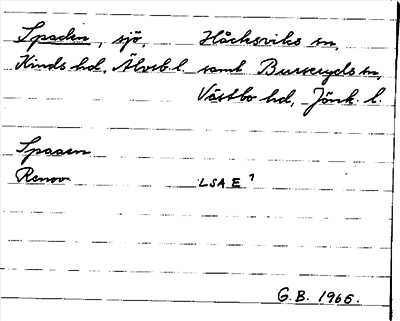 Spaden, sjö, Håcksviks sn,
Kinds hd, Älvsb. l. samt Burseryds sn,
Västbo hd, Jönk. l.
Spaaen
Renov LSA E 1
G.B. 1966.